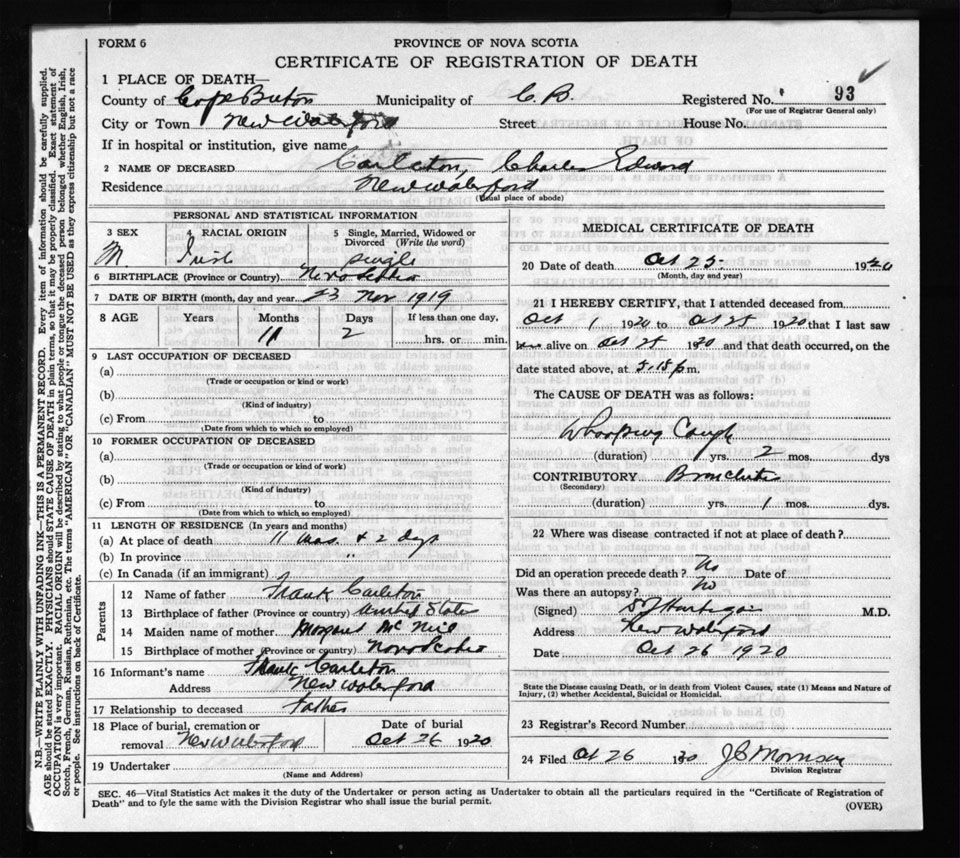 FORM 6
PROVINCE OF NOVA SCOTIA
CERTIFICATE OF REGISTRATION OF DEATH
1 PLACE OF DEATH—
County of Cape Breton Municipality of C. B. Registered No. 93
(For use of Registrar General only)
City or Town New Waterford Street House No.
If in hospital or institution, give name
2 NAME OF DECEASED Carleton, Charles Edward
Residence New Waterford
(Usual place of abode)
PERSONAL AND STATISTICAL INFORMATION
3 SEX 4 RACIAL ORIGIN 5 Single, Married, Widowed or Divorced (Write the word)
M. Irish single
6 BIRTHPLACE (Province or Country) Nova Scotia
7 DATE OF BIRTH (month, day and year) 23 Nov 1919
8 AGE Years Months Days If less than one day,
11 2 hrs. or min.
9 LAST OCCUPATION OF DECEASED
(a)
(Trade or occupation or kind or work)
(b)
(Kind of industry)
(c) From to
(Date from which to which so employed)
10 FORMER OCCUPATION OF DECEASED
(a)
(Trade or occupation or kind of work)
(b)
(Kind of industry)
(c) From to
(Date from which to which so employed)
11 LENGTH OF RESIDENCE (In years and months)
(a) At place of death 11 mos. & 2 dys
(b) In province "
(c) In Canada (if an immigrant)
Parents
12 Name of father Frank Carleton
13 Birthplace of father (Province or country) United States
14 Maiden name of mother McNeil
15 Birthplace of mother (Province or country) Nova Scotia
16 Informant's name Frank Carleton
Address New Waterford
17 Relationship to deceased Father
18 Place of burial, cremation or removal New Waterford Date of burial Oct 26 1920
19 Undertaker
(Name and Address)
MEDICAL CERTIFICATE OF DEATH
20 Date of death Oct 25 1920
(Month, day and year)
21 I HEREBY CERTIFY, that I attended deceased from
Oct 1 1920 to Oct 25 1920 that I last saw
him alive on Oct 25 1920 and that death occurred, on the
date stated above, at 5.15 p m.
The CAUSE OF DEATH was as follows:
Whooping Cough
(duration) yrs. 2 mos. dys
CONTRIBUTORY Bronchitis
(Secondary)
(duration) yrs. 1 mos. dys.
22 Where was disease contracted if not at place of death?
Did an operation precede death? No Date of
Was there an autopsy? No
(Signed) M.D.
Address New Waterford
Date Oct 26 1920
State the Disease causing Death, or in death from Violent Causes, state (1) Means and Nature of
Injury, (2) whether Accidental, Suicidal or Homicidal.
23 Registrar's Record Number
24 Filed Oct 26 J C Morrison
Division Registrar
SEC. 46—Vital Statistics Act makes it the duty of the Undertaker or person acting as Undertaker to obtain all the particulars required in the "Certificate of Registration of
Death" and to fyle the same with the Division Registrar who shall issue the burial permit.
(OVER)
N.B.—WRITE PLAINLY WITH UNFADING INK—THIS IS A PERMANENT RECORD. Every item of information should be carefully supplied.
AGE should be stated EXACTLY. PHYSICIANS should STATE CAUSE OF DEATH in plain terms, so that it may be properly classified. Exact statement of
OCCUPATION is very important. RACIAL ORIGIN will be described by stating to what people or tongue the deceased person belonged whether English, Irish,
Scotch, French, German, Russian, Ruthenian, etc. The terms "AMERICAN" OR "CANADIAN" MUST NOT BE USED as they express citizenship but not a race
or people. See instructions on back of Certificate.